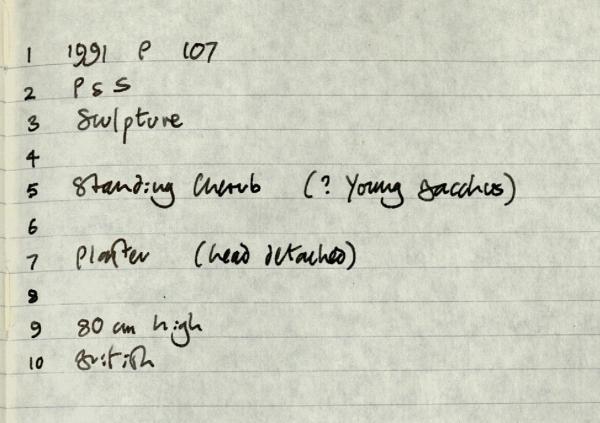 1 1991 P 107
2 P & S
3 Sculpture
4
5 Standing Cherub (? Young Bacchus)
6
7 Plaster (head detached)
8
9 80 cm high
10 British